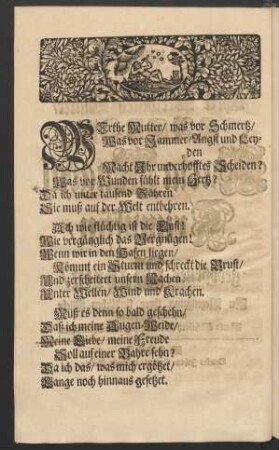 WErthe Mutter/ was vor Schmertz/
Was vor Jammer/ Angst und Ley-
den
Macht Ihr unverhofftes Scheiden?
Was vor Wunden fühlt mein Hertz?
Da ich unter tausend Zähren
Sie muß auf der Welt entbehren.
Ach wie flüchtig ist die Lust!
Wie vergänglich das Vergnügen!
Wenn wir in den Hafen liegen/
Kömmt ein Sturm und schreckt die Brust/
Und zerscheitert unsern Nachen
Unter Wellen/ Wind und Krachen.
Muß es denn so bald geschehn/
Daß ich meine Augen-Weide/
Meine Liebe/ meine Freude
Soll auf einer Bahre sehn?
Da ich das/ was mich ergötzet/
Lange noch hinnaus gesetzet.